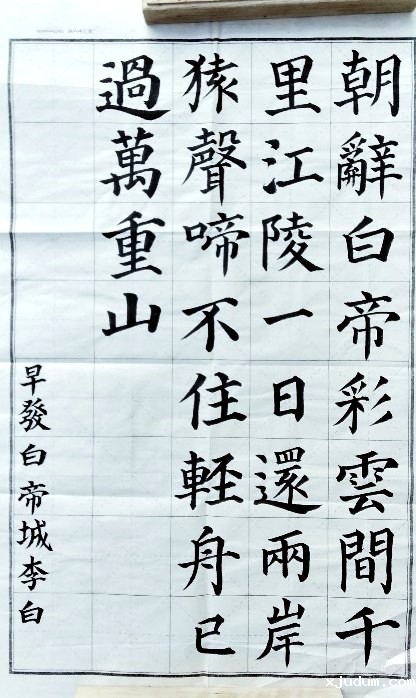 朝辭白帝彩雲間千
里江陵一日還兩岸
猿聲啼不住輕舟已
過萬重山
早發白帝城李白
xjudum.com